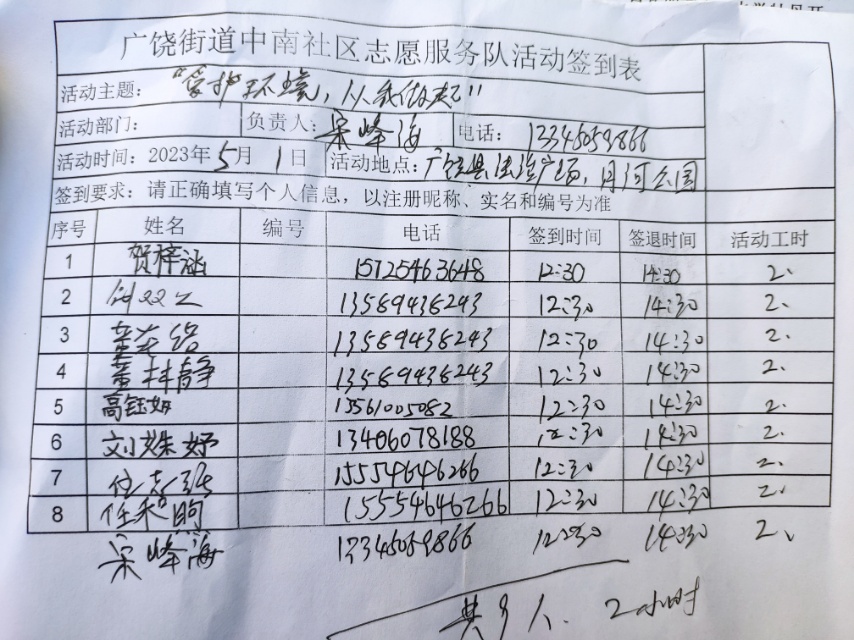 广饶街道中南社区志愿服务队活动签到表
活动主题: "爱护环境,从我做起"
活动部门: 负责人: 宋峰海 电话: 13345059866
活动时间: 2023年5月1日 活动地点: 广饶县法治广场,月河公园
签到要求: 请正确填写个人信息,以注册昵称、实名和编号为准
序号 姓名 编号 电话 签到时间 签退时间 活动工时
1 贺梓涵 15725463648 12:30 14:30 2、
2 13589438243 12:30 14:30 2、
3 13589438243 12:30 14:30 2、
4 董林静 13589438243 12:30 14:30 2、
5 高钰如 13561005082 12:30 14:30 2、
6 刘姝妤 13406078188 12:30 14:30 2、
7 任志强 15554646266 12:30 14:30 2、
8 任禾 15554646266 12:30 14:30 2、
宋峰海 13345059866 12:30 14:30 2、
共9人. 2小时